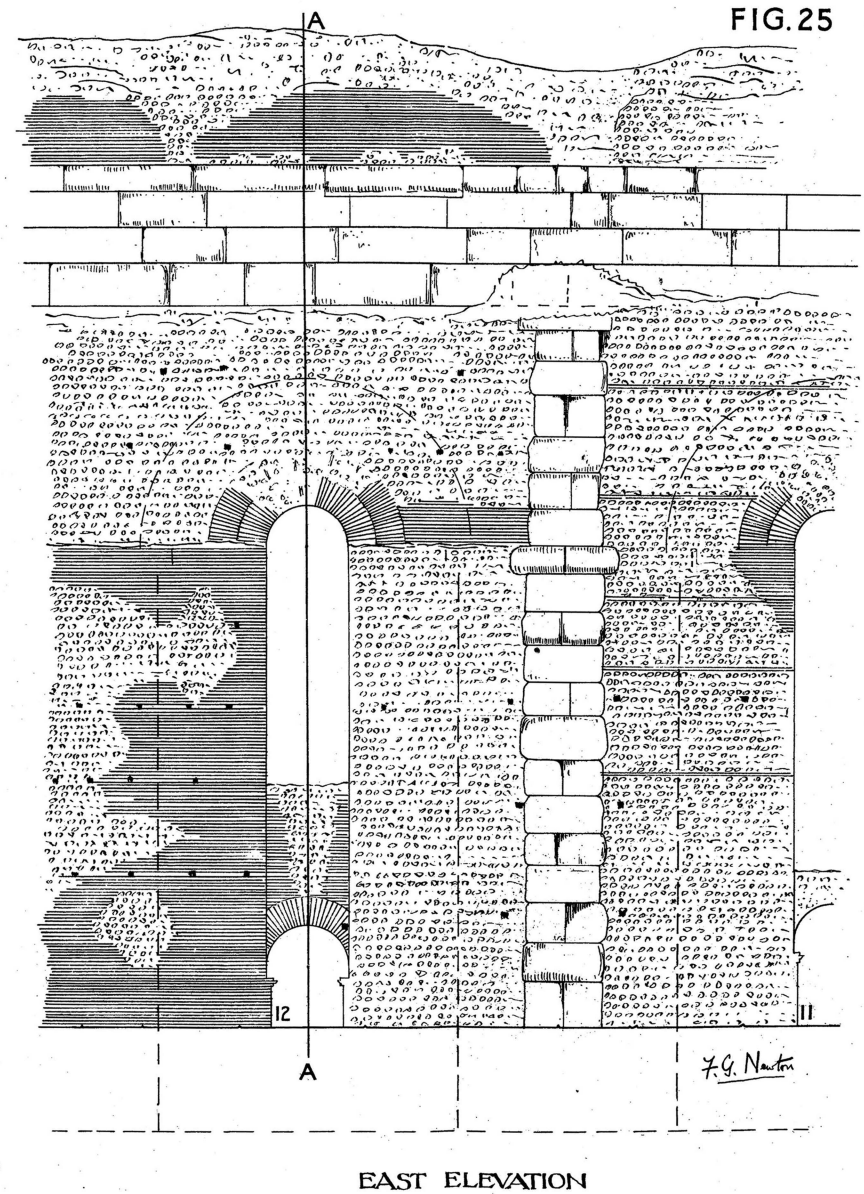 FIG. 25
A
12
11
A
F. G. Newton
EAST ELEVATION